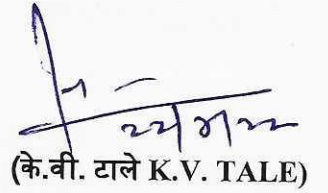 (के.वी. टाले K.V. TALE)